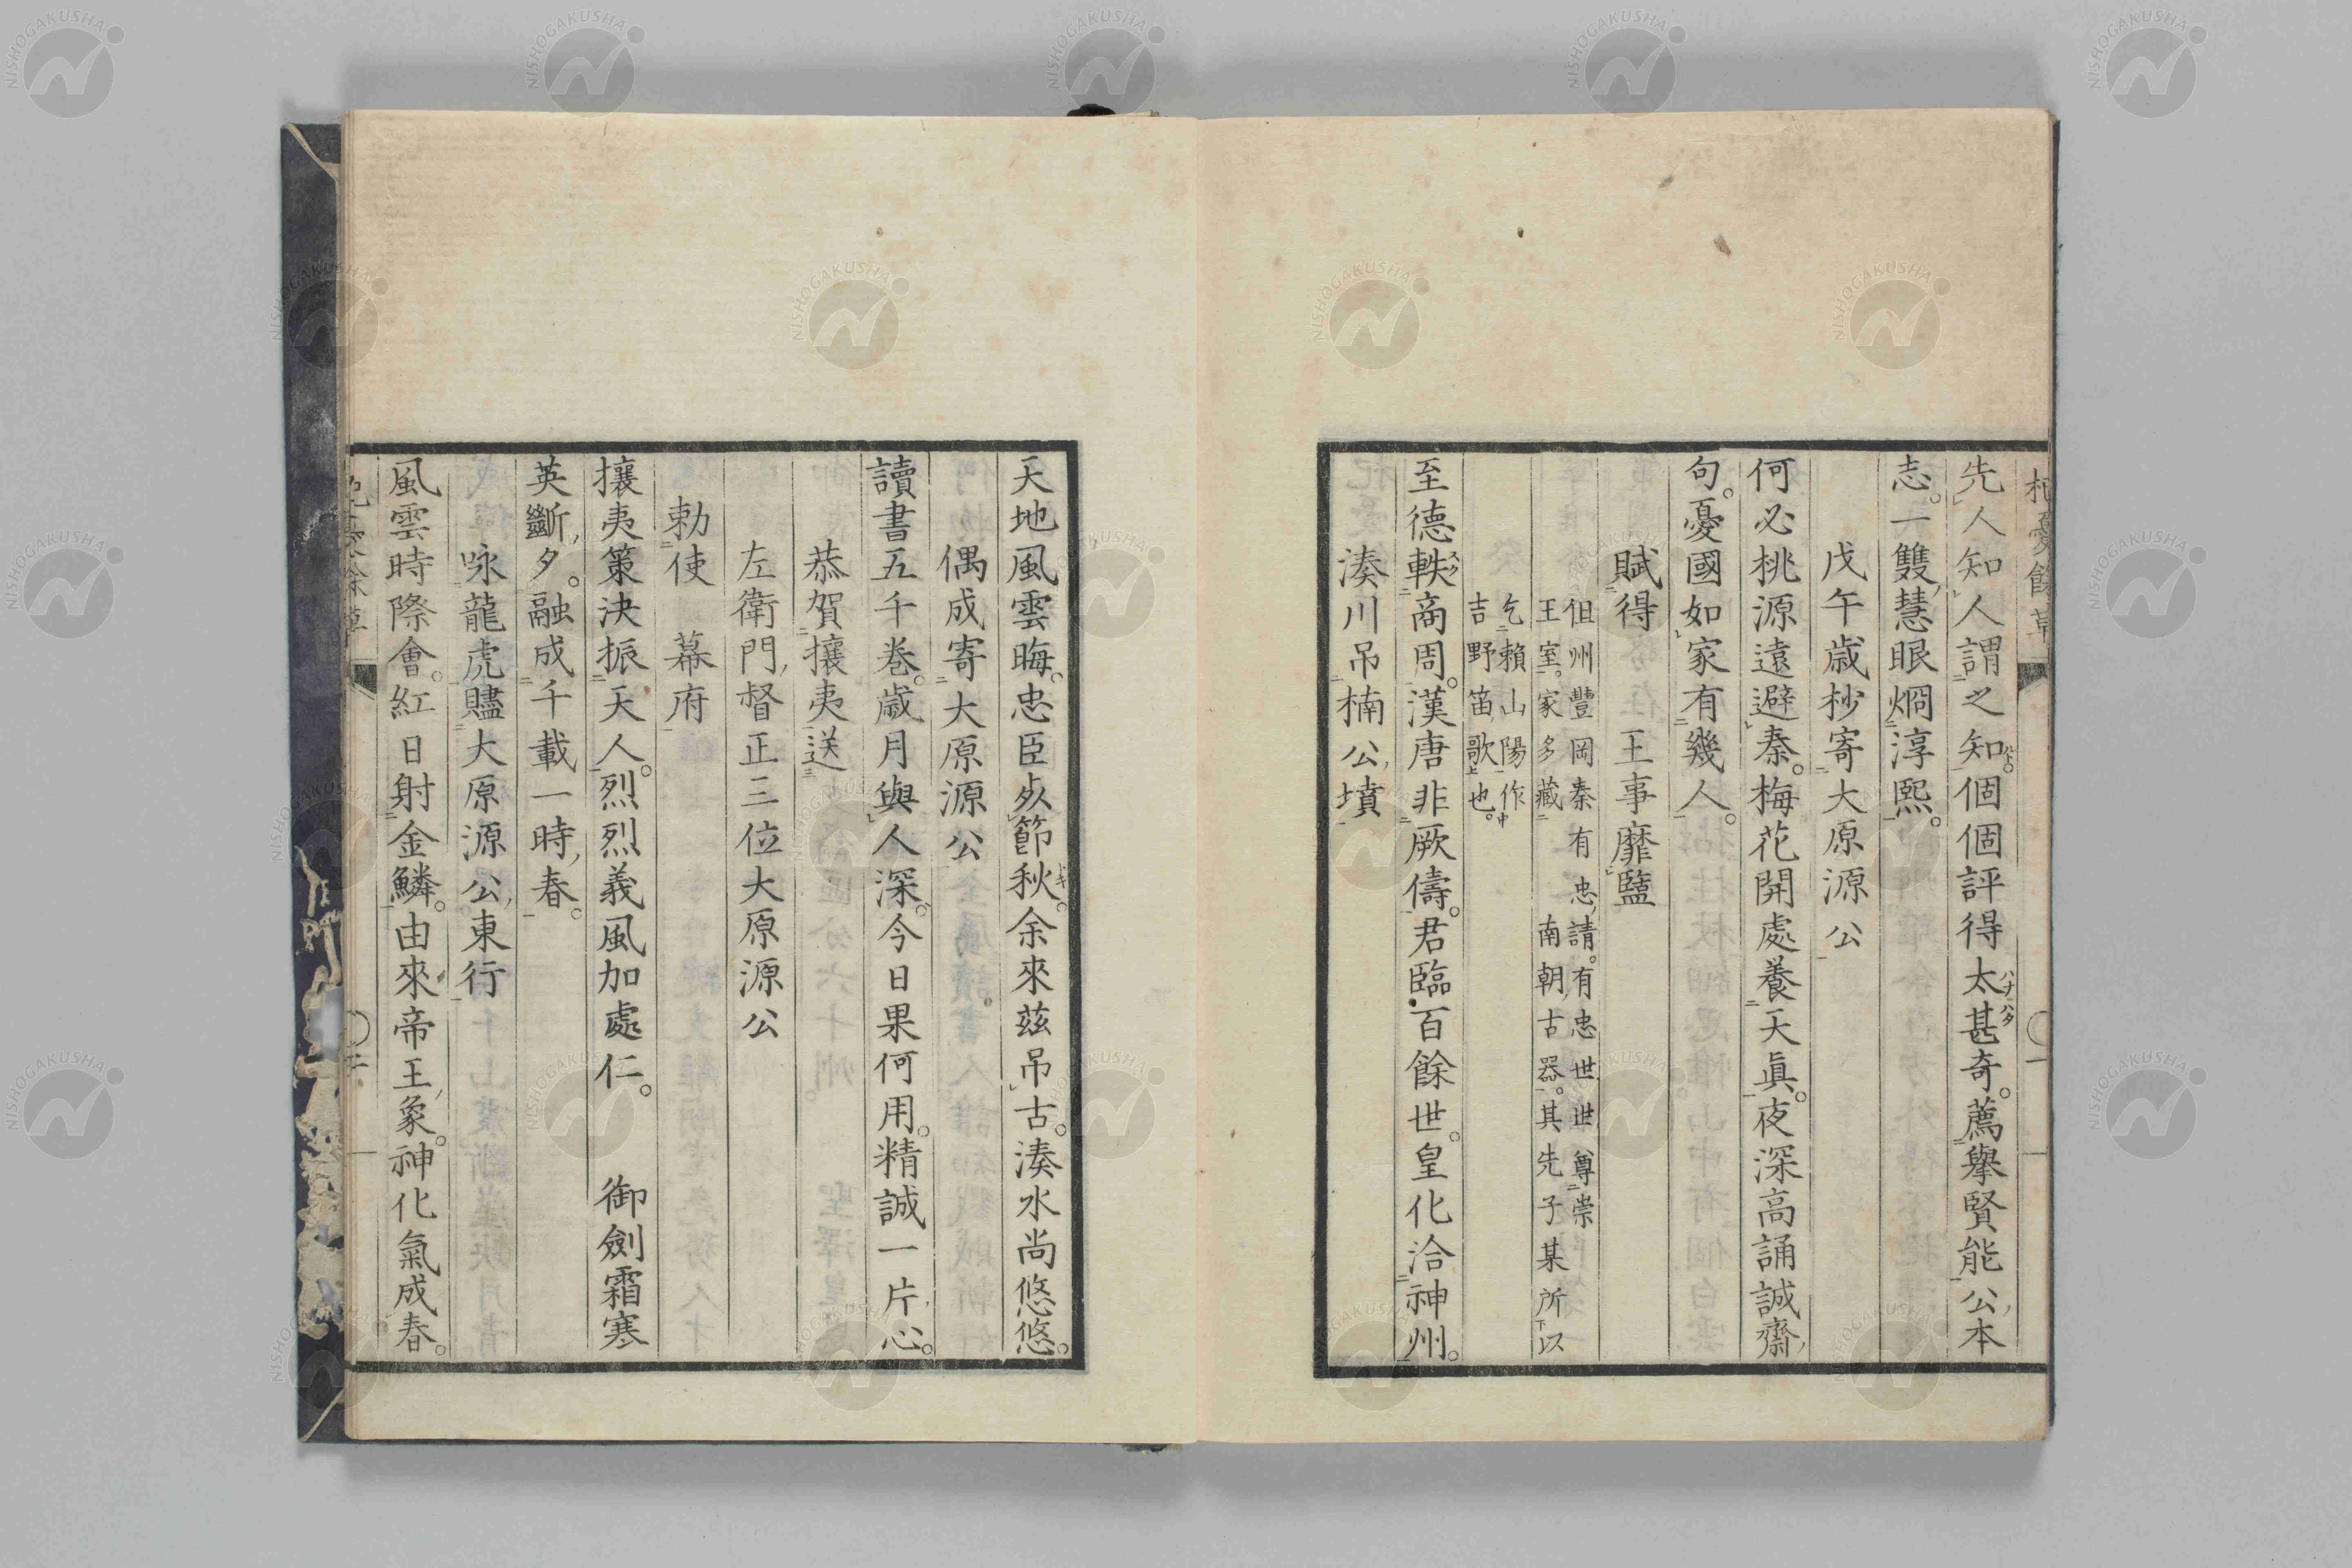 杞憂餘草
先人知人謂之知。個個評得太甚奇。薦擧賢能公本
志。一雙慧眼烱淳熙。
戊午歲杪寄大原源公
何必桃源遠避秦。梅花開處養天眞。夜深高誦誠齋
句。憂國如家有幾人。
賦得　王事靡盬
但州豐岡秦有忠請。有忠世世尊崇
王室。家多藏南朝古器。其先子某所以
乞賴山陽作
吉野笛歌也。
至德軼商周。漢唐非厥儔。君臨百餘世。皇化洽神州。
湊川吊楠公墳
天地風雲晦。忠臣死節秋。余來茲吊古。湊水尚悠悠。
偶成寄大原源公
讀書五千卷。歲月與人深。今日果何用。精誠一片心。
恭賀攘夷送
左衛門督正三位大原源公
勅使　幕府
攘夷策決振天人。烈烈義風加處仁。　御劍霜寒
英斷夕。融成千載一時春。
咏龍虎贐大原源公東行
風雲時際會。紅日射金鱗。由來帝王象。神化氣成春。
杞憂餘草
NISHOGAKUSHA